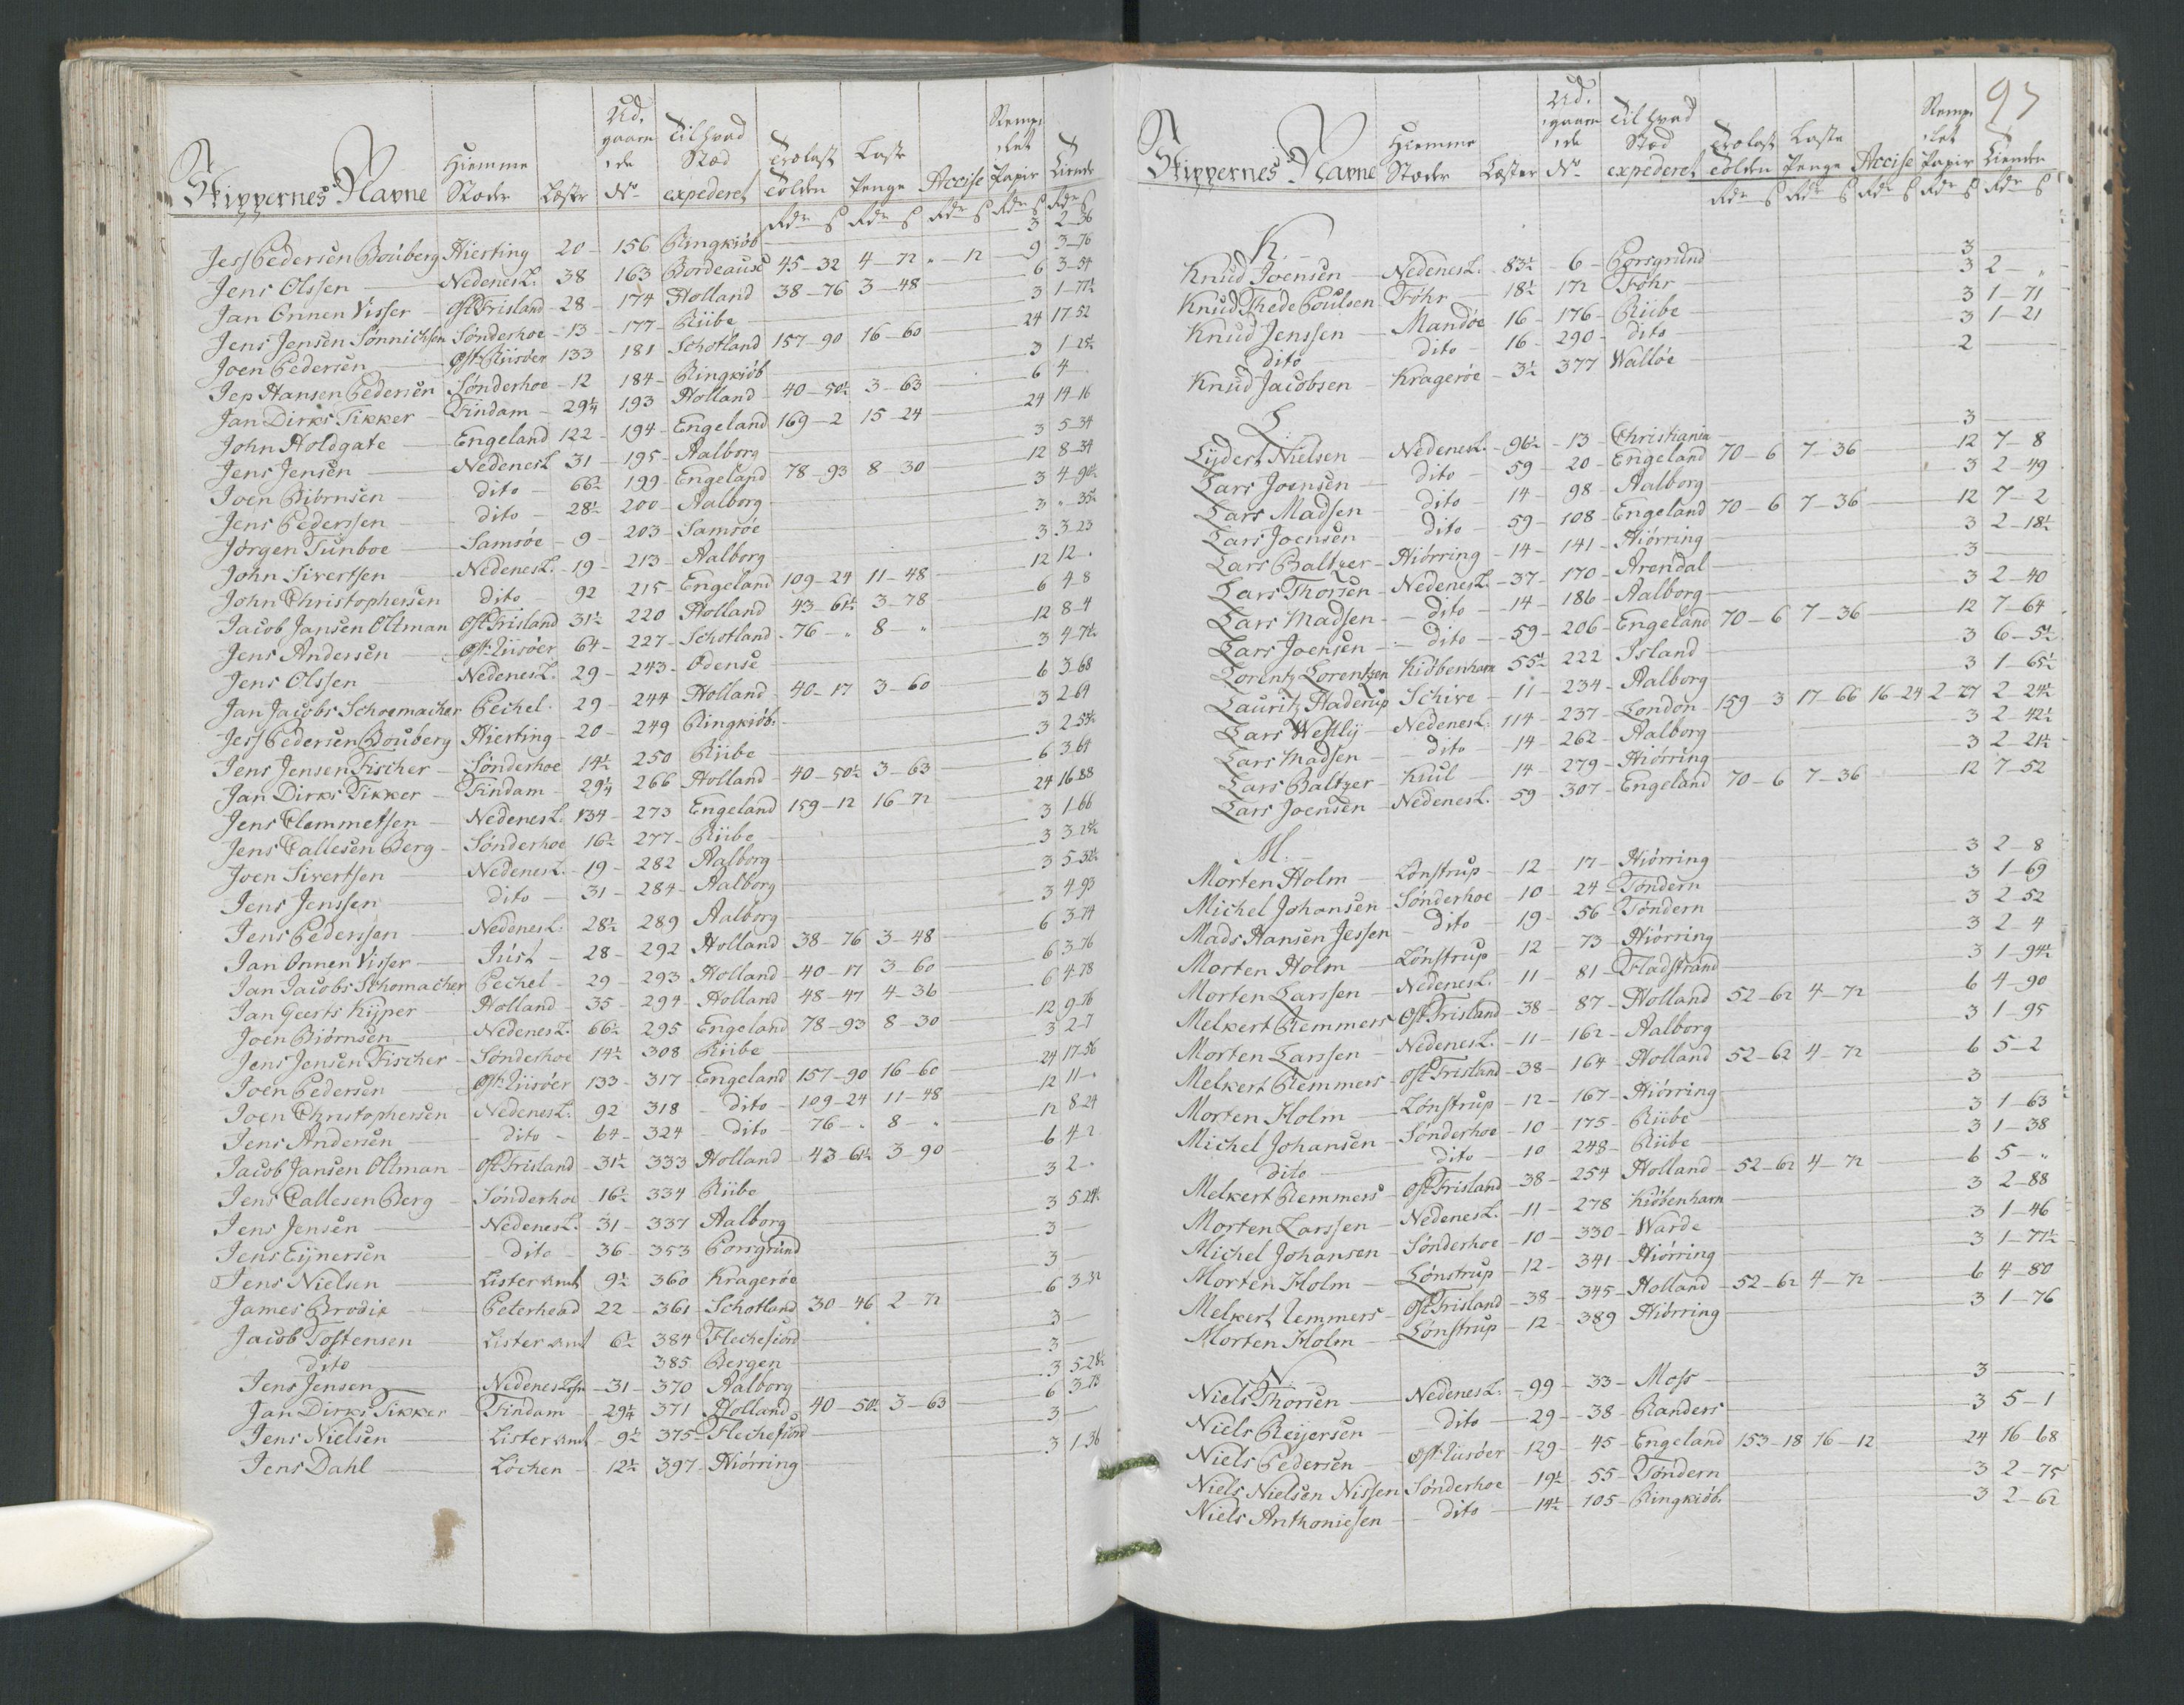 Skippernes Navne Hiemme Stæder Læster Ud- gaaen- de No Til hvad Stæd expederet Trælast Tolden Laste Penge Accise Stemp- let Papir Tiende
Rdr ß Rdr ß Rdr ß Rdr ß Rdr ß
Jess Pedersen Bouberg Hierting 20 - 156 Ringkiøb 3 2-36
Jens Olssen Nedenes L. 38 163 Bordeaux 45-32 4-72 „-12 9 3-76
Jan Onnen Visser Ost Frisland 28 - 174 Holland 38-76 3-48 6 3-54
Jens Jensen Sønnichsen Sønderhoe 13 - 177 - Riibe 3 1-77½
Joen Pedersen Øst Riisøer 133 181 Schotland 157-90 16-60 24 17 52
Jep Hansen Pedersen Sønderhoe - 12 184 - Ringkiøb 3 1-25½
Jan Dirks Tikker Tindam - 29¼ 193 Holland 40-50½ 3-63 6 4
John Holdgate Engeland 122 - 194 - Engeland 169-2 15-24 24 14-16
Jens Jensen Nedenes L 31 - 195 - Aalborg 3 5-34
Joen Biørnsen dito 66½ 199 - Engeland 78-93 8-30 12 8-34
Jens Pederssen dito 28½ 200 - Aalborg 3 4-90½
Jørgen Tunboe Samsøe - 9 - 203 - Samsøe 3 „-35½
John Sivertsen Nedenes L. - 19 - 213 - Aalborg 3 3-23
John Christophersen dito 92 215 - Engeland 109-24 11-48 12 12 -
Jacob Jansen Oltman Ost Frisland 31½ 220 Holland 43-61½ 3-78 6 4-8
Jens Andersen Øst Riisøer 64 - 227 - Schotland 76-„ 8-„ 12 8-4
Jens Olssen Nedenes L. 29 - 243 - Odense 3 4-71½
Jan Jacobs Schoemacher Pechel 29 - 244 Holland 40-17 3-60 6 3-68
Jess Pedersen Bouberg Hierting - 20 - 249 Ringkiøb. 3 2-64
Jens Jensen Fischer - Sønderhoe 14½ 250 Riibe 3 2-55½
Jan Dirks Tikker - Tindam - 29¼ 266 Holland - 40-50½ 3-63 6 3-64
Jens Clemmetsen Nedenes L. 134 - 273 Engeland 159-12 16-72 24 16-88
Jens Callesen Berg - Sønderhoe 16½ 277 - Riibe 3 1-66
Joen Sivertsen Nedenes L. - 19 - 282 Aalborg 3 3-25½
Jens Jenssen dito 31 - 284 - Aalborg 3 5-32½
Jens Pederssen Nedenes L. 28½ 289 Aalborg 3 4-93
Jan Onnen Visser Juist - 28 - 292 Holland 38-76 3-48 6 3-74
Jan Jacobs Schomacher Pechel - 29 - 293 Holland - 40-17 3-60 6 3-76
Jan Geerts Kijper Holland - 35 - 294 - Holland 48-47 4-36 6 4-78
Joen Biørnsen Nedenes L. 66½ 295 Engeland 78-93 8-30 12 9-76
Jens Jensen Fischer - Sønderhoe 14½ 308 Riibe 3 2-7
Joen Pedersen Øst Riisøer 133 - 317 - Engeland 157-90 16-60 24 17-56
Joen Christophersen - Nedenes L. 92 318 - dito - 109-24 11-48 12 11-„
Jens Andersen dito - 64 - 324 - dito - 76-„ 8-„ 12 8-24
Jacob Jansen Oltman Ost Frisland - 31½ 333 Holland - 43-61½ 3-90 6 4-2
Jens Callesen Berg - Sønderhoe 16½ 334 Riibe 3 2-„
Jens Jensen Nedenes L. 31 - 337 Aalborg 3 5-24½
Jens Eijnersen dito - 36 - 353 Porsgrund 3
Jens Nielsen Lister Amt 9½ 360 Kragerøe 3
James Brodie Peterhead 22 - 361 - Schotland 30-46 2-72 6 3-32
Jacob Tostensen Lister Amt 6½ 384 Flechefiord 3
dito 385 Bergen 3
Jens Jensen Nedenes Lehn - 31 - 370 Aalborg 3 5-28½
Jan Dirks Tikker - Tindam - 29¼ 371 Holland - 40-50½ 3-63 6 3-78
Jens Nielsen Lister Amt - 9½ 375 - Flechefiord 3
Jens Dahl Løchen - 12½ 397 - Hiørring 3 1-36
97
Skippernes Navne Hiemme Stæder Læster Ud- gaaen- de No Til hvad Stæd expederet Trælast Tolden Laste Penge Accise Stemp- let Papir Tiende
Rdr ß Rdr ß Rdr ß Rdr ß Rdr ß
K
Knud Joensen Nedenes L. - 83½ - 6 - Porsgrund 3
Knud Thede Poulsen Føhr 18½ 172 Føhr 3 2-„
Knud Jenssen Mandøe 16 - 176 - Riibe 3 1-71
dito dito - 16 - 290 - dito 3 1-21
Knud Jacobsen Kragerøe - 3½ 377 Walløe 2
L
Lydert Nielsen - Nedenes L. - 96½ - 13 - Christiania 3
Lars Joensen dito - 59 - 20 - Engeland 70-6 7-36 12 7-8
Lars Madsen - dito - 14 - 98 - Aalborg 3 2-49
Lars Joensen dito - 59 - 108 - Engeland 70-6 7-36 12 7-2
Lars Baltzer - Hiørring - 14 - 141 - Hiørring 3 2-18½
Lars Thorsen - Nedenes L. - 37 - 170 - Arendal 3
Lars Madsen - dito - 14 - 186 - Aalborg 3 2-40
Lars Joensen - dito - 59 - 206 - Engeland 70-6 7-36 12 7-64
Lorentz Lorentzen Kiøbenhavn 55½ 222 Island 3 6-5½
Lauritz Haderup Schive - 11 - 234 - Aalborg 3 1-65½
Lars Westly - Nedenes L. 114 - 237 - London 159-3 17-66 16-24 2-27 2-24½
Lars Madsen dito - 14 - 262 - Aalborg 3 2-42½
Lars Baltzer - Kuul 14 - 279 - Hiørring 3 2-21½
Lars Joensen - Nedenes L. 59 - 307 - Engeland 70-6 7-36 12 7-52
M.
Morten Holm Lønstrup - 12 - 17 - Hiørring 3 2-8
Michel Johansen - Sønderhoe - 10 - 24 - Tøndern 3 1-69
Mads Hansen Jessen - dito - 19 - 56 - Tøndern 3 2-52
Morten Holm Lønstrup - 12 - 73 - Hiørring 3 2-4
Morten Larssen - Nedenes L. - 11 - 81 - Fladstrand 3 1-94½
Melkert Remmers Ost Frisland - 38 - 87 - Holland 52-62 4-72 6 4-90
Morten Larssen - Nedenes L. - 11 - 162 - Aalborg 3 1-95
Melkert Remmers - Ost Frisland - 38 - 164 - Holland 52-62 4-72 6 5-2
Morten Holm Lønstrup - 12 - 167 - Hiørring 3
Michel Johansen - Sønderhoe - 10 - 175 - Riibe 3 1-63
dito dito - 10 248 - Riibe 3 1-38
Melkert Remmers - Ost Frisland - 38 - 254 Holland - 52-62 4-72 6 5-„
Morten Larssen - Nedenes L. - 11 - 278 Kiøbenhavn 3 2-88
Michel Johansen - Sønderhoe - 10 - 330 - Warde 3 1-46
Morten Holm Lønstrup - 12 - 341 - Hiørring 3 1-77½
Melkert Remmers - Ost Frisland - 38 - 345 - Holland - 52-62 4-72 6 4-80
Morten Holm Lønstrup - 12 - 389 Hiørring 3 1-76
N.
Niels Thorsen Nedenes L. - 99 - 33 - Moss 3
Niels Reijersen dito - 29 - 38 - Randers 3 5-1
Niels Pedersen Øst Riisøer - 129 - 45 - Engeland 153-18 16-12 24 16-68
Niels Nielsen Nissen Sønderhoe - 19½ - 55 - Tøndern 3 2-75
Niels Anthoniesen - dito - 14½ - 105 - Ringkiøb. 3 2-62